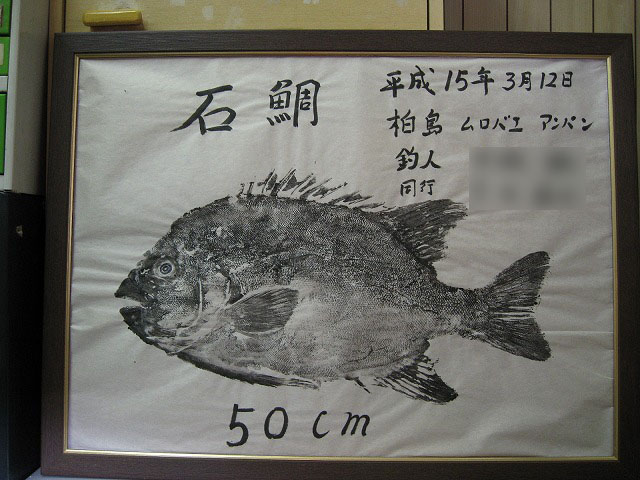 石鯛
平成15年3月12日
柏島 ムロバエ アンパン
釣人
同行
50cm